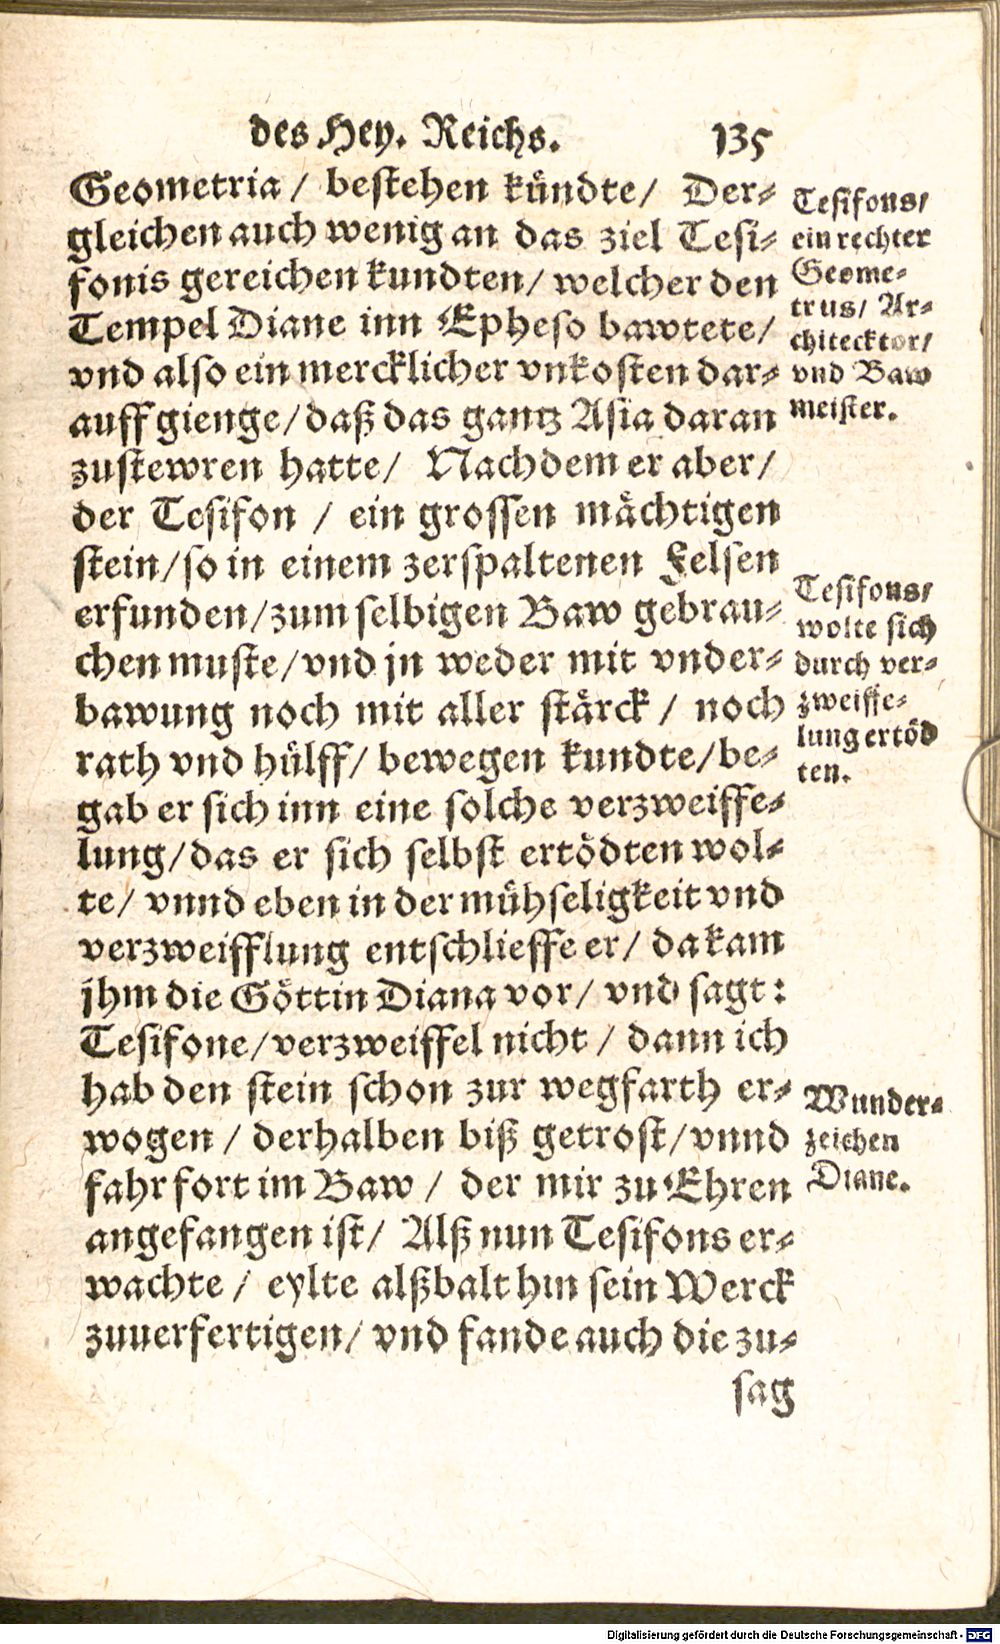 des Hey. Reichs. 135
Geometria / bestehen kündte / Der⸗
gleichen auch wenig an das ziel Tesi⸗
fonis gereichen kundten / welcher den
Tempel Diane inn Epheso bawtete /
vnd also ein mercklicher vnkosten dar⸗
auff gienge / daß das gantz Asia daran
zustewren hatte / Nachdem er aber /
der Tesifon / ein grossen mächtigen
stein / so in einem zerspaltenen Felsen
erfunden / zum selbigen Baw gebrau⸗
chen muste / vnd jn weder mit vnder⸗
bawung noch mit aller stärck / noch
rath vnd hülff / bewegen kundte / be⸗
gab er sich inn eine solche verzweiffe⸗
lung / das er sich selbst ertödten wol⸗
te / vnnd eben in der mühseligkeit vnd
verzweifflung entschlieffe er / da kam
jhm die Göttin Diana vor / vnd sagt:
Tesifone / verzweiffel nicht / dann ich
hab den stein schon zur wegfarth er⸗
wogen / derhalben biß getrost / vnnd
fahr fort im Baw / der mir zu Ehren
angefangen ist / Alß nun Tesifons er⸗
wachte / eylte alßbalt hin sein Werck
zuuerfertigen / vnd fande auch die zu⸗
sag
Tesifons /
ein rechter
Geome⸗
trus / Ar⸗
chitecktor /
vnd Baw
meister.
Tesifons /
wolte sich
durch ver⸗
zweiffe⸗
lung ertöd
ten.
Wunder⸗
zeichen
Diane.
Digitalisierung gefördert durch die Deutsche Forschungsgemeinschaft - DFG